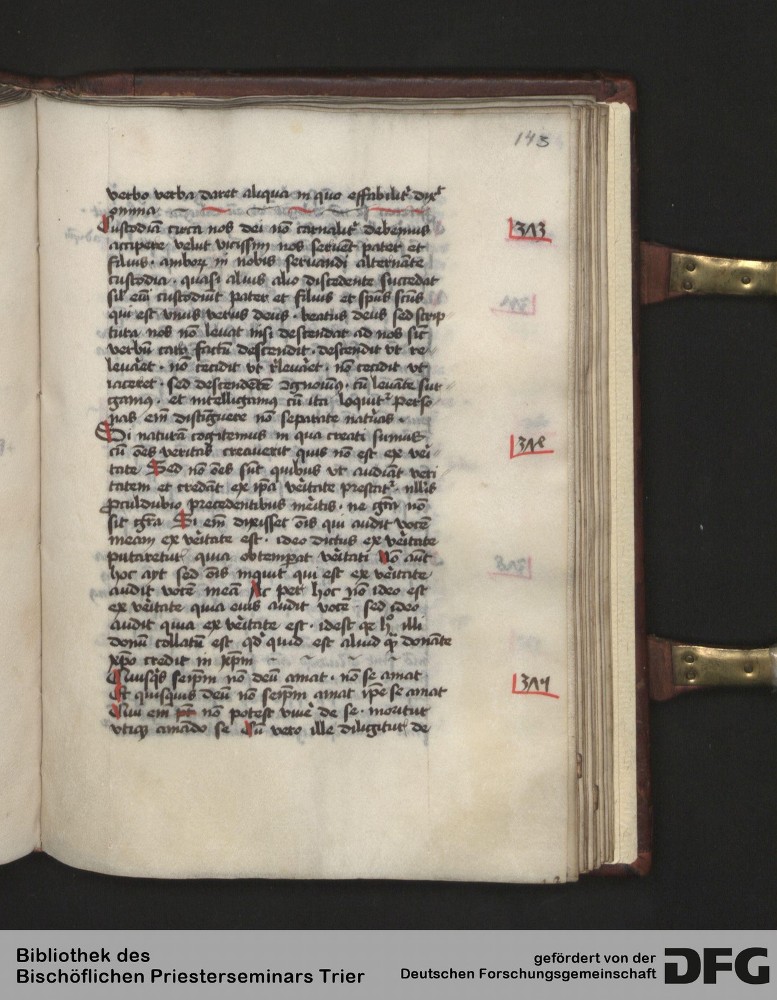 143
verbo verba daret aliqua in quo effabilit᷒ dix᷒
omnia
Custodiā circa nos dei nō carnalit᷒ debemus
accipere velut vicissim nos seruēt pater et
filius · amborꝝ in nobis seruandi alternāte
custodia · quasi alius alio discedente succedat
sil᷒ em̄ custodiūt pater et filius et spūs scūs
qui est vnus verus deus · beatus deus sed scrip
tura nos nō leuat nisi descendat ad nos sic᷒
verbū caro factū descendit · descendit vt re
leuaret · nō cecidit vt releuaret · nō cecidit vt
iaceret · sed descendētē ꝯgnoim᷒ · cū leuāte sur
gamꝰ · et intelligamꝰ cū ita loquit᷒ perso
nas em̄ distīguere nō separare nat᷒as ·
Si naturā cogitemus in qua creati sumus
cū oēs veritas creauerit quis nō est ex veri
tate Sed nō oēs sūt quibus vt audiāt veri
tatem et credāt ex ip̄a veritate prestat᷒ · nll̄is
ꝓculdubio precedentibus meritis · ne gr̄a nō
sit gr̄a Si em̄ dixisset oīs qui audit vocē
meam ex veritate est · ideo dictus ex veritate
putaretur quia obtemperat veritati Nō aūt
hoc ayt sed oīs inquit qui est ex veritate
audit vocē meā Ac per hoc nō ideo est
ex veritate quia eius audit vocē · sed ideo
audit quia ex veritate est · idest qr̄ h᷒ illi
donū collatū est qd̄ quid est aliud qͣ donāte
xp̄o credit in xp̄m
Quisq̄s seip̄m nō deū amat · nō se amat
Et quisquis deū nō seip̄m amat ip̄e se amat
Qui em̄ nō potest viuē de se · moritur
vtiqꝫ amādo se Cū vero ille diligitur de
313
314
Bibliothek des
Bischöflichen Priesterseminars Trier
gefördert von der
Deutschen Forschungsgemeinschaft
DFG